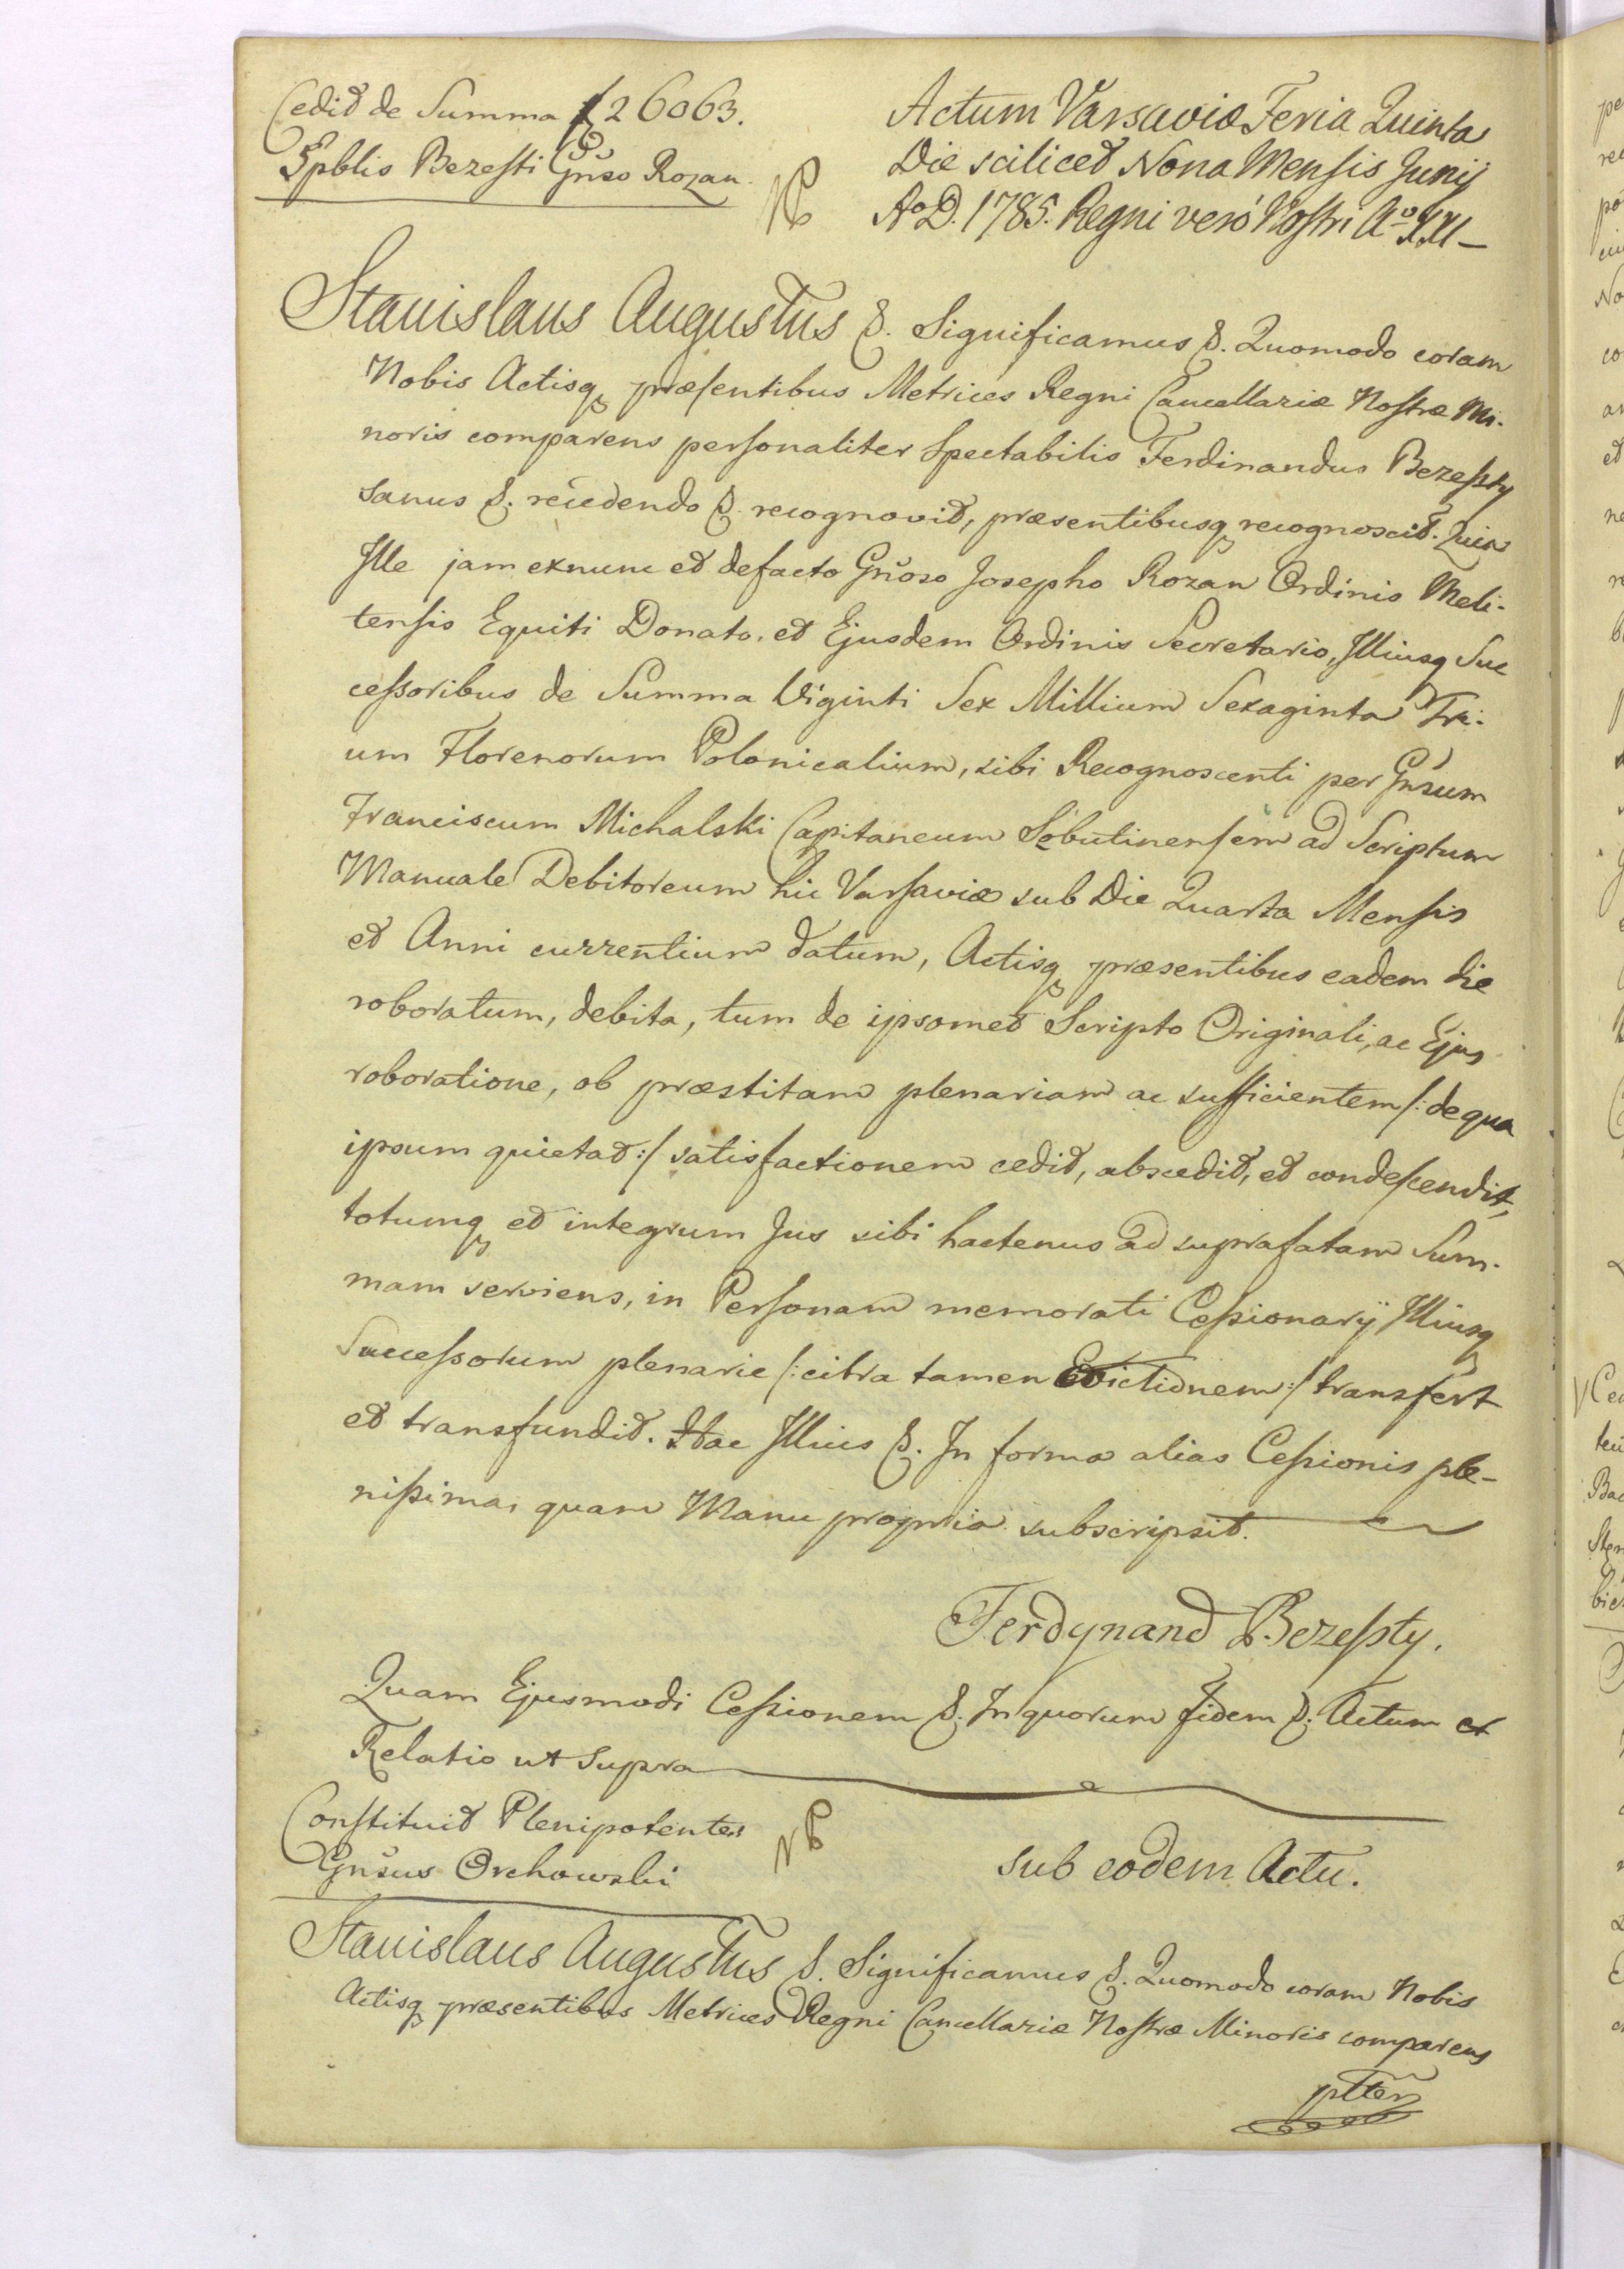 Cedit de Summa f 26063.
Spblis Bezesti Gnso Rozan.
NB
Actum Varsaviæ Feria Quinta
Die scilicet Nona Mensis Junij
Ao D. 1785. Regni veró Nostri Ao XXI
Stanislaus Augustus &. Significamus &. Quomodo coram
Nobis Actisq præsentibus Metrices Regni Cancellariæ Nostræ Mi-
noris comparens personaliter Spectabilis Ferdinandus Bezessty
sanus &. recedendo &. recognovit, præsentibusq recognoscit. Quia
Ille jam exnunc et defacto Gnoso Josepho Rozan Ordinis Meli-
tensis Equiti Donato, et Ejusdem Ordinis Secretario, Illiusq Suc
cessoribus de Summa Viginti Sex Millium Sexaginta Tri-
um Florenorum Polonicalium, sibi Recognoscenti per Gnsum
Franciscum Michalski Capitaneum Sębutinensem ad Scriptum
Manuale Debitoreum hic Varsaviæ sub Die Quarta Mensis
et Anni currentium datum, Actisq præsentibus eadem die
roboratum, debita, tum de ipsomet Scripto Originali, ac Ejus
roboratione, ob præstitam plenariam ac sufficientem /: de qua
ipsum quietat :/ satisfactionem cedit, abscedit, et condescendit,
totumq et integrum Jus sibi hactenus ad suprafatam Sum-
mam serviens, in Personam memorati Cessionarij Illiusq
Successorum plenarie /: citra tamen Evictionem :/ transfert
et transfundit. Hac Illius &. In forma alias Cessionis ple-
nissima, quam Manu propria subscripsit.
Ferdynand Bezessty.
Quam Ejusmodi Cessionem &. In quorum fidem &. Actum et
Relatio ut supra
Constituit Plenipotentes
Gnsus Orchowski
NB
sub eodem Actu.
Stanislaus Augustus &. Significamus &. Quomodo coram Nobis
Actisq præsentibus Metrices Regni Cancellariæ Nostræ Minoris comparens
plter